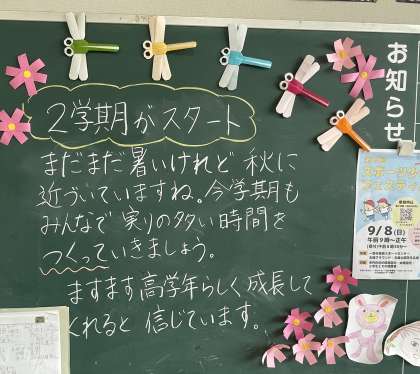 お知らせ
2学期がスタート
まだまだ暑いけれど秋に
近づいていますね。今学期も
みんなで実りの多い時間を
つくっていきましょう。
ますます高学年らしく成長して
くれると信じています。
スポーツ
フェスティ
9/8(日)
午前9時〜正午